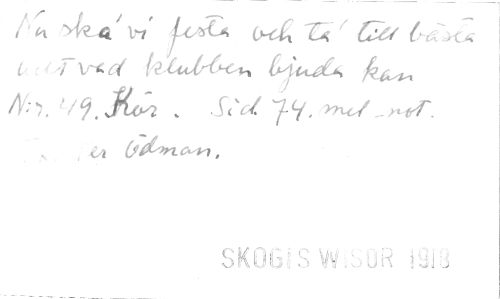 Nu ska' vi festa och ta' till bästa
utt vad klubben bjuda kan
N:r. 49. Kör. Sid. 74. mel-not.
Ödman.
SKOGIS WISOR 1918